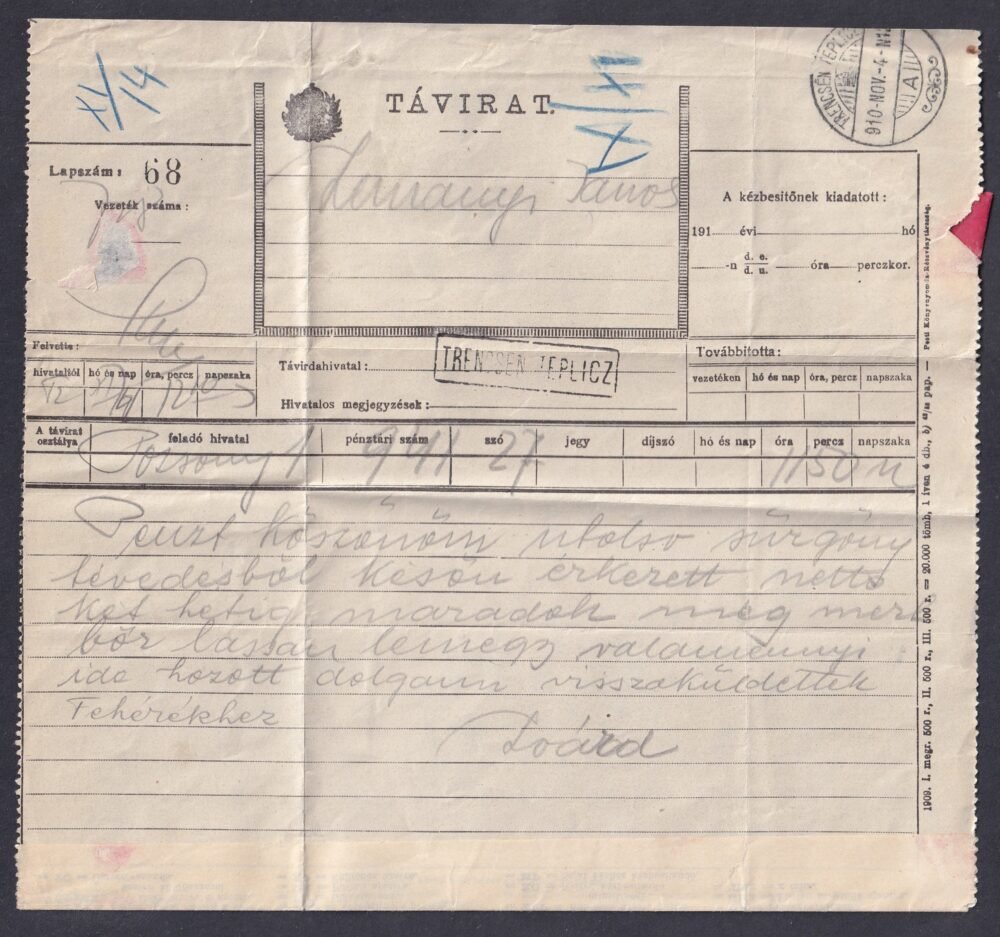 XI/14
TÁVIRAT.
XI/4
TRENCSÉN TEPLICZ
910-NOV.-4-N
A
Lapszám: 68
Vezeték száma:
János
A kézbesitőnek kiadatott:
191 évi hó
-n d. e. d. u. óra perczkor.
Felvette:
hivataltól hó és nap óra, percz napszaka
Távirdahivatal: TRENCSÉN TEPLICZ
Hivatalos megjegyzések:
Továbbitotta:
vezetéken hó és nap óra, percz napszaka
A távirat osztálya feladó hivatal pénztári szám szó jegy díjszó hó és nap óra percz napszaka
Pozsony 1 941 27 11 50
Penzt köszönöm utolso sürgöny
tévedésböl késön érkezett netto
ket hetig maradok meg mert
bör lassan lemegy valamennyi
ide hozott dolgaim visszaküldettek
Fehérékhez
1909. I. megr. 500 r., II. 500 r., III. 500 r. = 20.000 tömb, 1 íven 4 db., b) pap. — Pesti Könyvnyomda-Részvénytársaság.